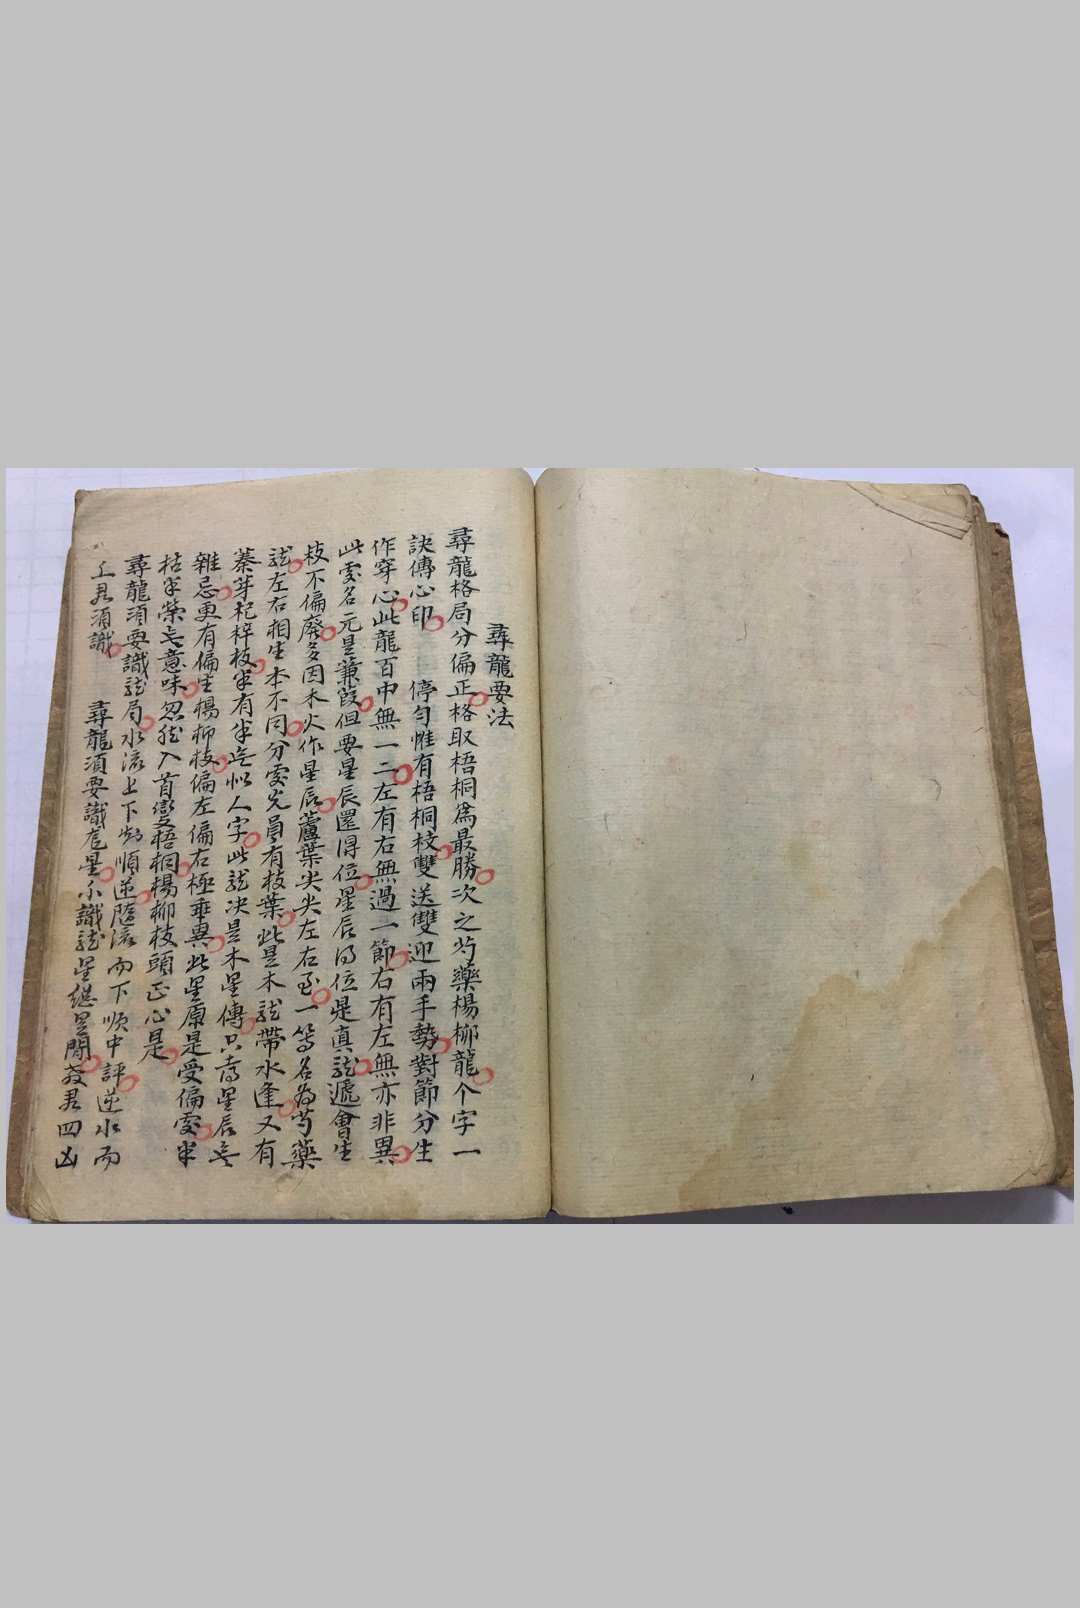 尋龍要法
尋龍格局分偏正格取梧桐為最勝次之芍藥楊柳龍个字一
訣傳心印　停勻惟有梧桐枝雙送雙迎兩手勢對節分生
作穿心此龍百中無一二左有右無過一節右有左無亦非異
此處名元是蒹葭但要星辰還得位星辰得位是真龍遞會生
枝不偏廢多因木火作星辰蘆葉尖尖左右至一等名為芍藥
龍左右相生本不同分處光員有枝葉此是木龍帶水逢又有
蓁芽杞梓枝半有半无似人字此龍决是木星傳只為星辰无
雜忌更有偏生楊柳枝偏左偏右極乖異此星原是受偏處半
枯半榮无意味忽然入首變梧桐楊柳枝頭正心是
尋龍須要識龍局水流上下為順逆隨流而下順中評逆水而
上君須識　尋龍須要識龍星不識龍星總是閒發君四凶